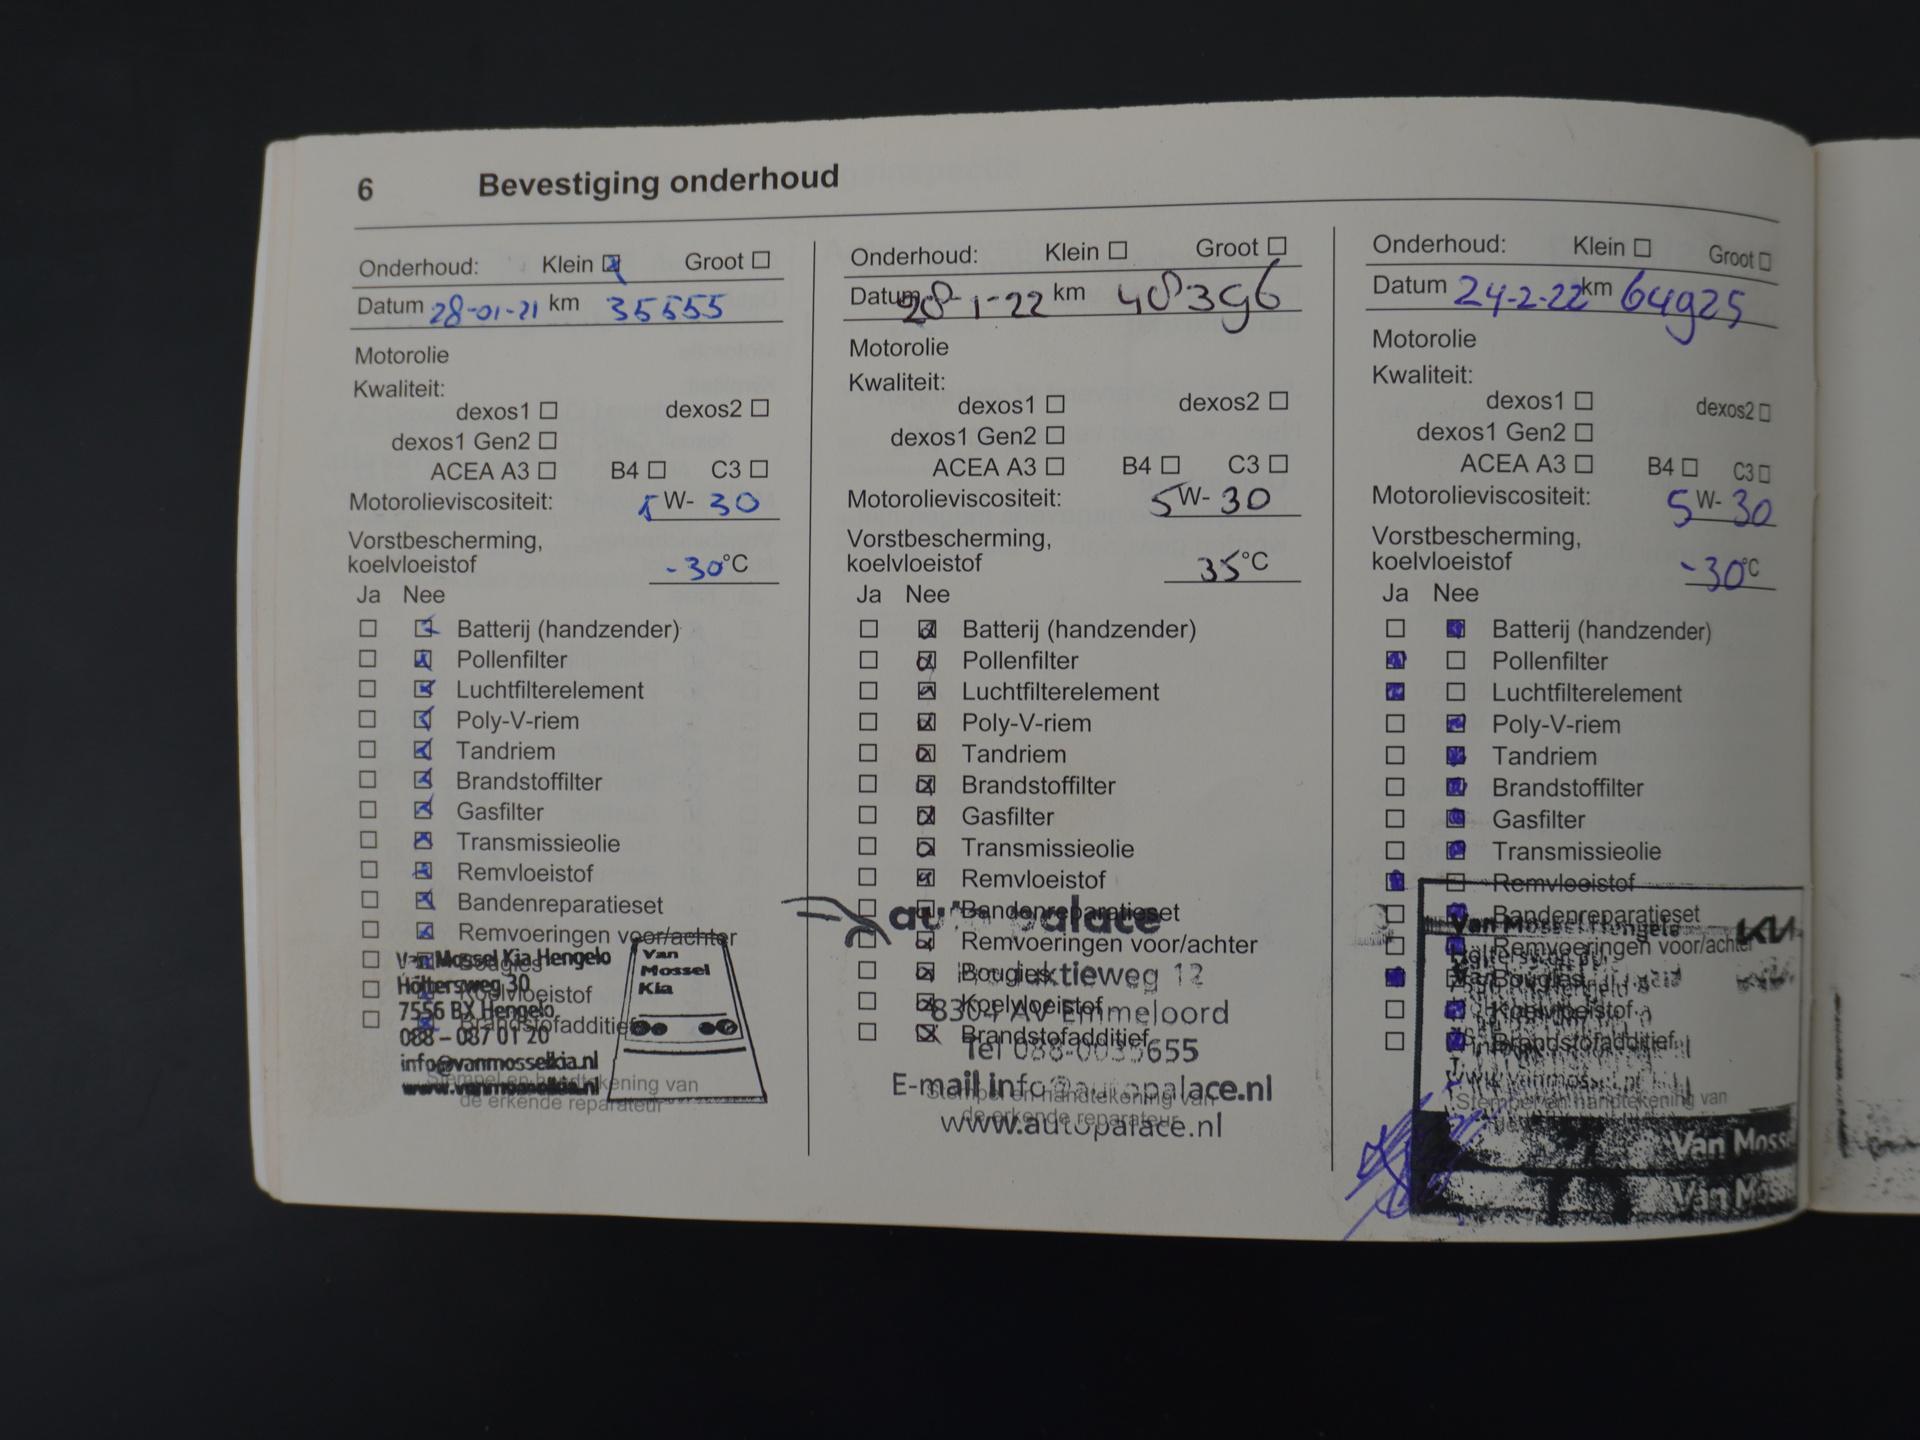 6 Bevestiging onderhoud
Onderhoud: Klein Groot
Datum 28-01-21 km 35555
Motorolie
Kwaliteit:
dexos1 dexos2
dexos1 Gen2
ACEA A3 B4 C3
Motorolieviscositeit: 5 W- 30
Vorstbescherming,
koelvloeistof -30°C
Ja Nee
Batterij (handzender)
Pollenfilter
Luchtfilterelement
Poly-V-riem
Tandriem
Brandstoffilter
Gasfilter
Transmissieolie
Remvloeistof
Bandenreparatieset
Remvoeringen voor/achter
Bougies
Koelvloeistof
Brandstofadditief
Stempel en handtekening van
de erkende reparateur
Van Mossel Kia Hengelo
Höltersweg 30
7556 BX Hengelo
088 - 087 01 20
info@vanmosselkia.nl
www.vanmosselkia.nl
Van
Mossel
Kia
Onderhoud: Klein Groot
Datum 28-1-22 km 48396
Motorolie
Kwaliteit:
dexos1 dexos2
dexos1 Gen2
ACEA A3 B4 C3
Motorolieviscositeit: 5 W- 30
Vorstbescherming,
koelvloeistof 35°C
Ja Nee
Batterij (handzender)
Pollenfilter
Luchtfilterelement
Poly-V-riem
Tandriem
Brandstoffilter
Gasfilter
Transmissieolie
Remvloeistof
Bandenreparatieset
Remvoeringen voor/achter
Bougies
Koelvloeistof
Brandstofadditief
Stempel en handtekening van
de erkende reparateur
auto palace
12
8304 AV Emmeloord
Tel
E-mail info@autopalace.nl
www.autopalace.nl
Onderhoud: Klein Groot
Datum 24-2-22 km 64925
Motorolie
Kwaliteit:
dexos1 dexos2
dexos1 Gen2
ACEA A3 B4 C3
Motorolieviscositeit: 5 W- 30
Vorstbescherming,
koelvloeistof -30°C
Ja Nee
Batterij (handzender)
Pollenfilter
Luchtfilterelement
Poly-V-riem
Tandriem
Brandstoffilter
Gasfilter
Transmissieolie
Remvloeistof
Bandenreparatieset
Remvoeringen voor/achter
Bougies
Koelvloeistof
Brandstofadditief
Stempel en handtekening van
Van Mossel Hengelo
KIA
Van Mosse
Van Mosse